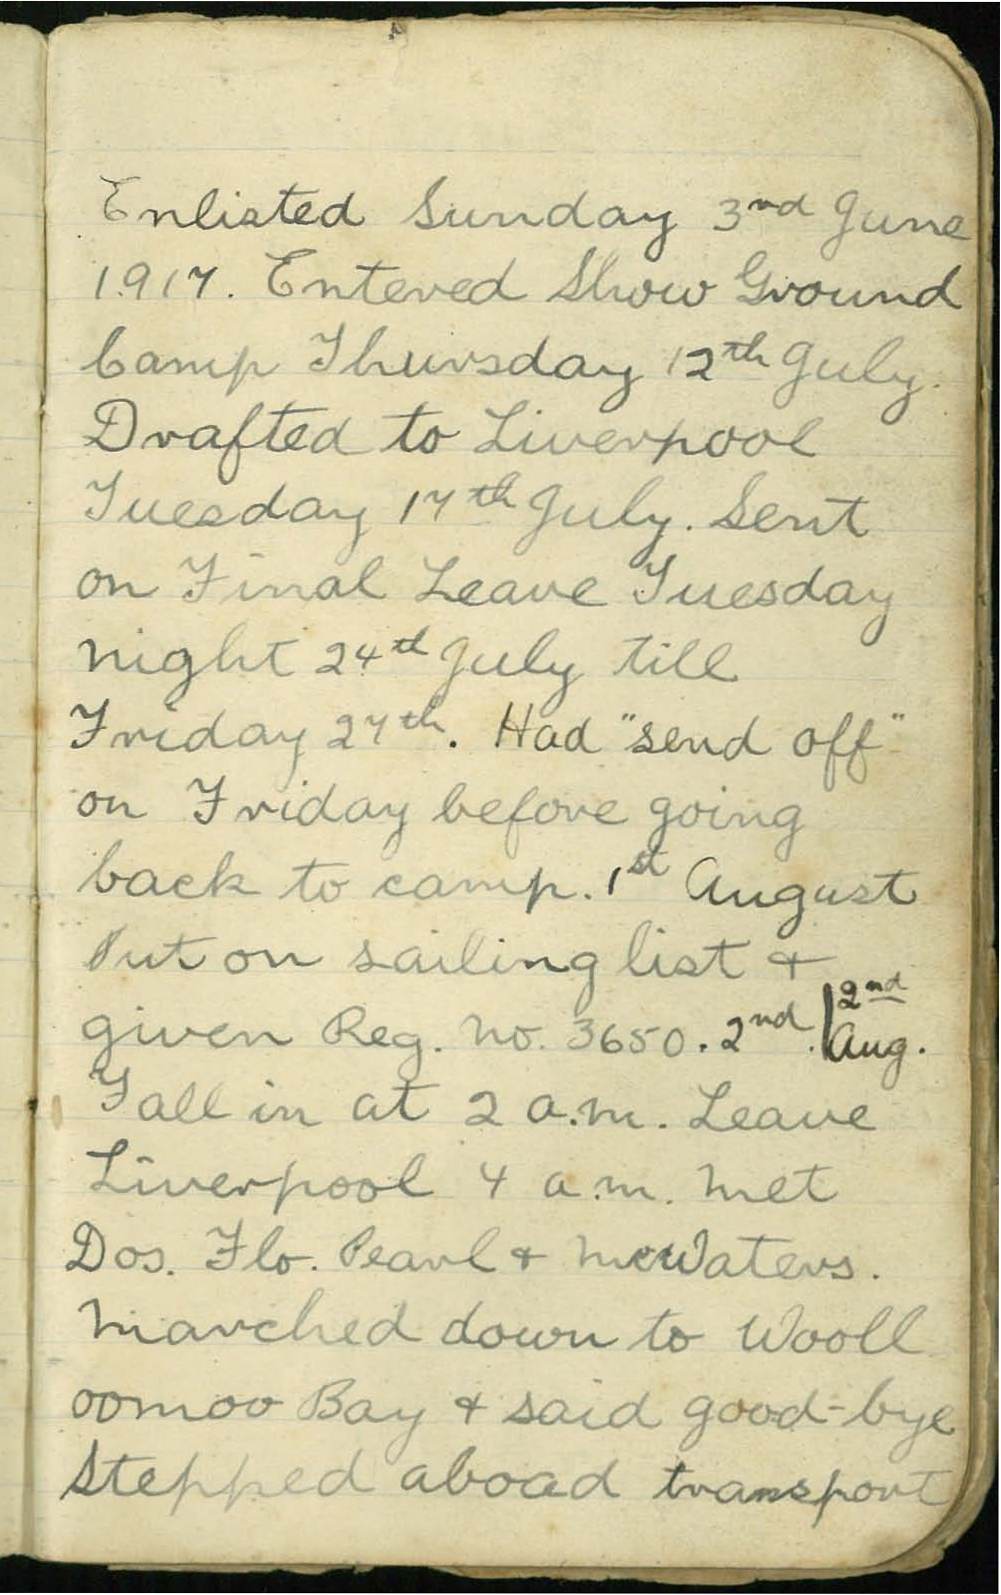 Enlisted Sunday 3rd June
1917. Entered Show Ground
Camp Thursday 12th July.
Drafted to Liverpool
Tuesday 17th July. Sent
on Final Leave Tuesday
night 24th July till
Friday 27th. Had "send off"
on Friday before going
back to camp. 1st August
Put on sailing list &
given Reg. No. 3650. 2nd. | 2nd Aug.
Fall in at 2 a.m. Leave
Liverpool 4 a.m. Met
Dos. Flo. Pearl & McWaters.
Marched down to Wooll
oomoo Bay & said good-bye
Stepped aboad transport